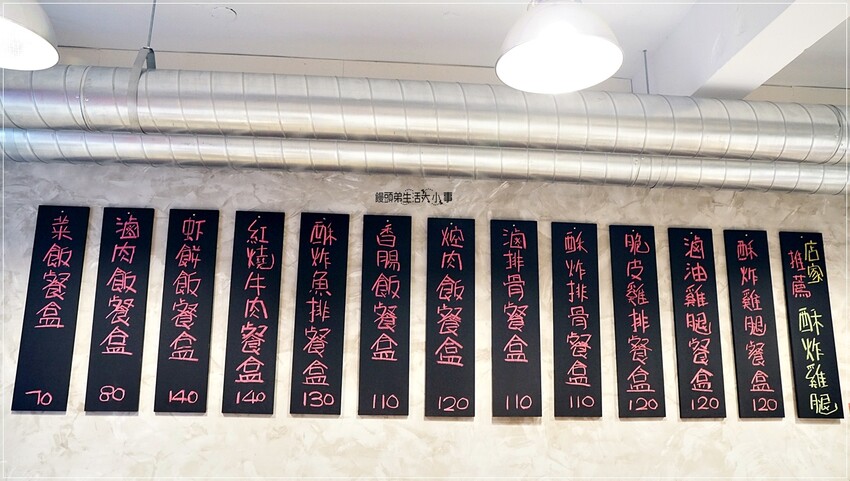 饅頭弟生活大小事
店家推薦 酥炸雞腿
酥炸雞腿餐盒 120
滷油雞腿餐盒 120
脆皮雞排餐盒 120
酥炸排骨餐盒 110
滷排骨餐盒 110
焢肉飯餐盒 120
香腸飯餐盒 110
酥炸魚排餐盒 130
紅燒牛肉餐盒 140
虾餅飯餐盒 140
滷肉飯餐盒 80
菜飯餐盒 70